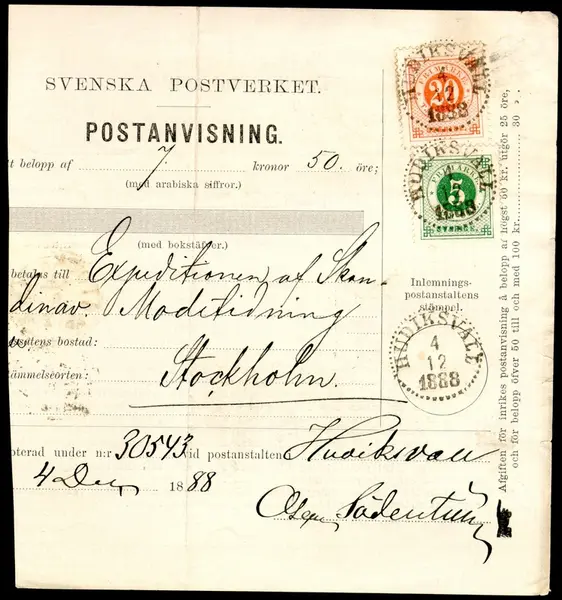 SVENSKA POSTVERKET.
POSTANVISNING.
tt belopp af 7 kronor 50. öre;
(med arabiska siffror.)
(med bokstäfver.)
betalas till Expeditionen af Skan-
dinav. Modetidning
ttens bostad:
tämmelseorten: Stockholm.
oterad under n:r 30543 vid postanstalten Hudiksvall
4 Dec 1888
FRIMÄRKE
20
HUDIKSVALL
4
12
1888
FRIMÄRKE
5
SVERIGE.
HUDIKSVALL
1888
Inlemnings-
postanstaltens
stämpel.
HUDIKSVALL
4
12
1888
Afgiften för inrikes postanvisning å belopp af högst 50 kr. utgör 25 öre,
och för belopp öfver 50 till och med 100 kr. 30 „